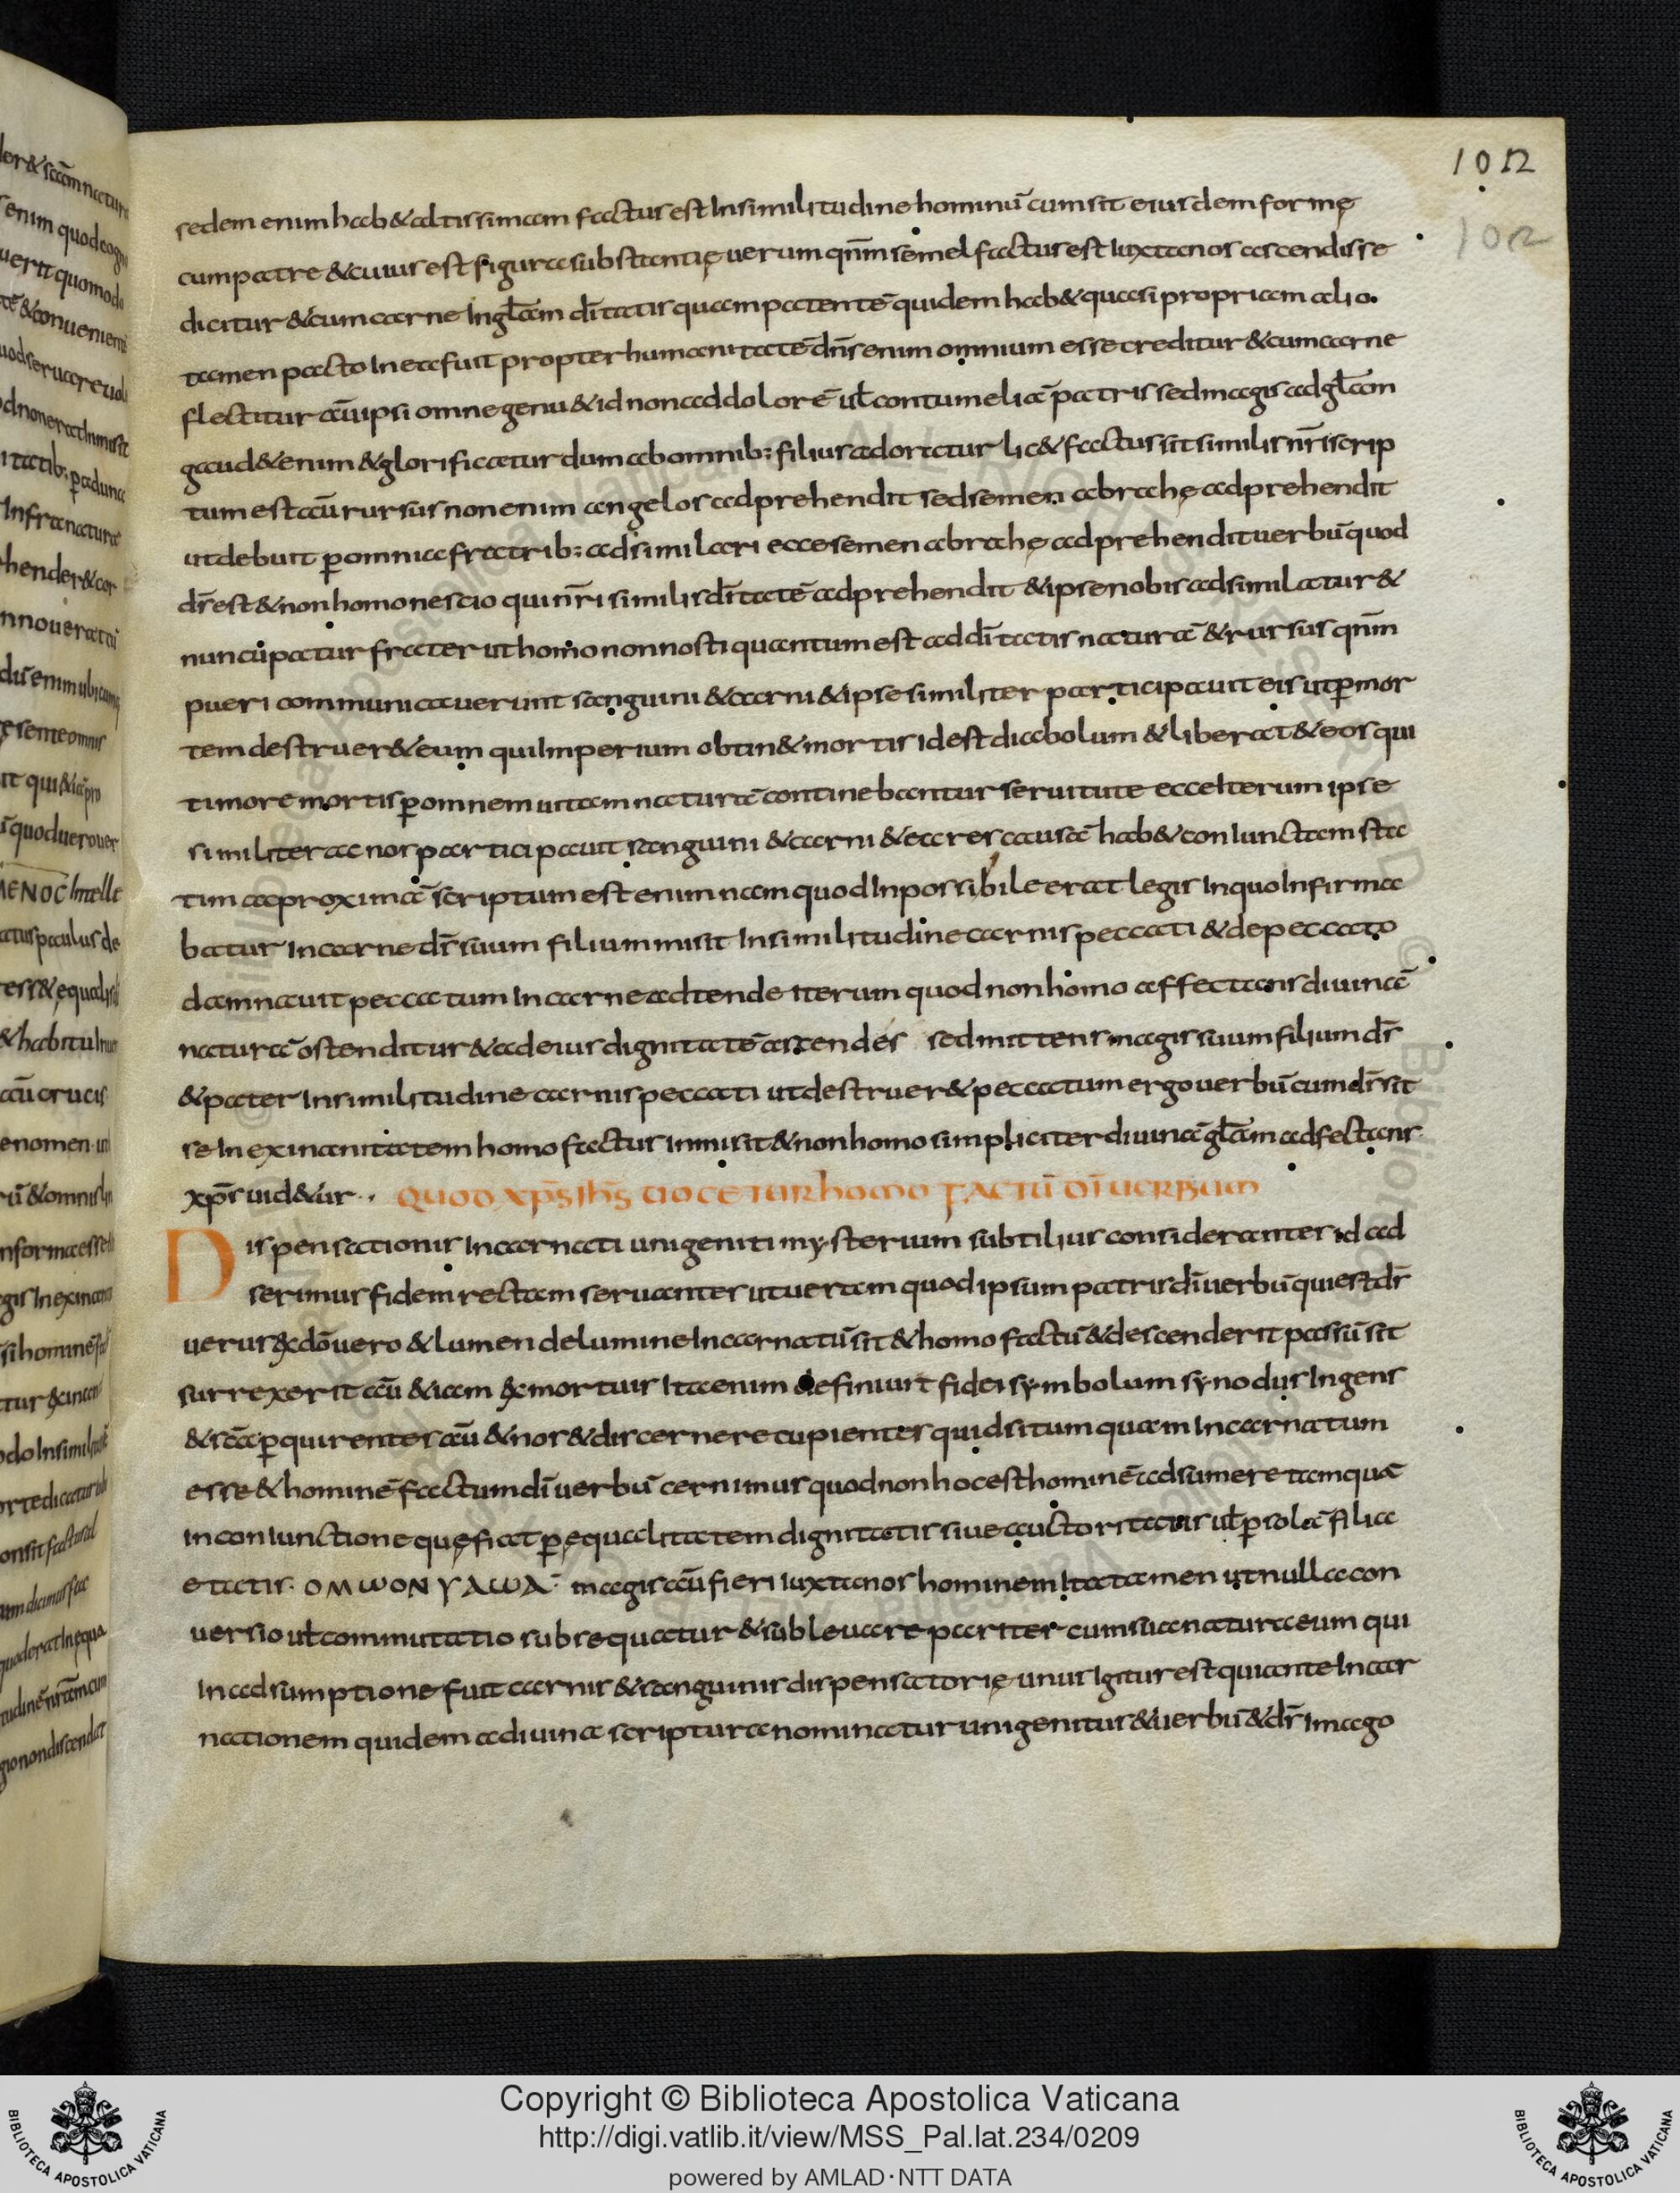 102
102
sedem enim hab& altissimam factus est In similitudine hominū cum sit eiusdem formę
cum patre & cuius est figura substantię uerum qnm̄ semel factus est Iuxta nos ascendisse
dicitur & cum carne In gl̄am dī̄tatis quam patentē quidem hab& quasi propriam alio.
tamen pacto In ea fuit propter humanitatē dn̄s enim omnium esse creditur & cum carne
flectitur aū ipsi omne genu & id non ad dolorē ul̄ contumeliā patris sed magis ad gl̄am
gaud& enim & glorificatur dum ab omnib; filius adoratur lic& factus sit similis nr̄i scrip
tum est aū rursus non enim angelos adprehendit sed semen abrahę adprehendit
ut debuit p̄ omnia fratrib; adsimilari ecce semen abrahę adprehendit uerbū quod
ds̄ est & non homo nescio qui nr̄i similis dī̄tatē adprehendit & ipse nobis adsimilatur &
nuncupatur frater ut homo non nosti quantum est ad dī̄tatis naturā & rursus qnm̄
pueri communicauerunt sanguini & carni & ipse similiter participauit eis ut p̄ mor
tem destruer& eum qui Imperium obtin& mortis id est diabolum & liberar& eos qui
timore mortis p̄ omnem uitam naturā continebantur seruitute ecce Iterum ipse
similiter ac nos participauit sanguini & carni & ea res causā hab& conIunctam sta
tim ac proximā scriptum est enim nam quod Inpossibile erat legis In quo Infirma
batur In carne ds̄ suum filium misit In similitudine carnis peccati & de peccato
damnauit peccatum In carne adtende iterum quod non homo affectans diuinā
naturā ostenditur & ad eius dignitatē ascendes sed mittens magis suum filium ds̄
& pater In similitudine carnis peccati ut destruer& peccatum ergo uerbū cum ds̄ sit
se In exinanitatem homo factus inmisit & non homo simpliciter diuinā gl̄am adfectans
xp̄s uid&ur.
QUOD XP̄S IH̄S UOCETUR homo FACTŪ DĪ UERBUM
Dispensationis Incarnati unigeniti mysterium subtilius considerantes id ad
serimus fidem rectam seruantes ut uertam quod ipsum patris dī uerbū qui est ds̄
uerus ex dō uero & lumen de lumine Incarnatū sit & homo factū & descenderit passū sit
surrexerit aū & iam ex mortuis Ita enim definiuit fidei symbolum synodus Ingens
& sc̄a p̄quirentes aū & nos & discernere cupientes quid situm quam Incarnatum
esse & hominē factum dī uerbū cernimus quod non hoc est hominē adsumere tamquā
in conIunctione quę fiat p̄ ęqualitatem dignitatis siue auctoritatis ul̄ p̄ solā filia
etatis. OMWON YΛWΛ magis aū fieri Iuxta nos hominem Ita tamen ut nulla con
uersio ul̄ commutatio subsequatur & subleuare pariter cum sua natura eum qui
In adsumptione fuit carnis & sanguinis dispensatorię unus Igitur est qui ante Incar
nationem quidem a diuina scriptura nominatur unigenitus & uerbū & ds̄ Imago
Copyright © Biblioteca Apostolica Vaticana
http://digi.vatlib.it/view/MSS_Pal.lat.234/0209
powered by AMLAD·NTT DATA